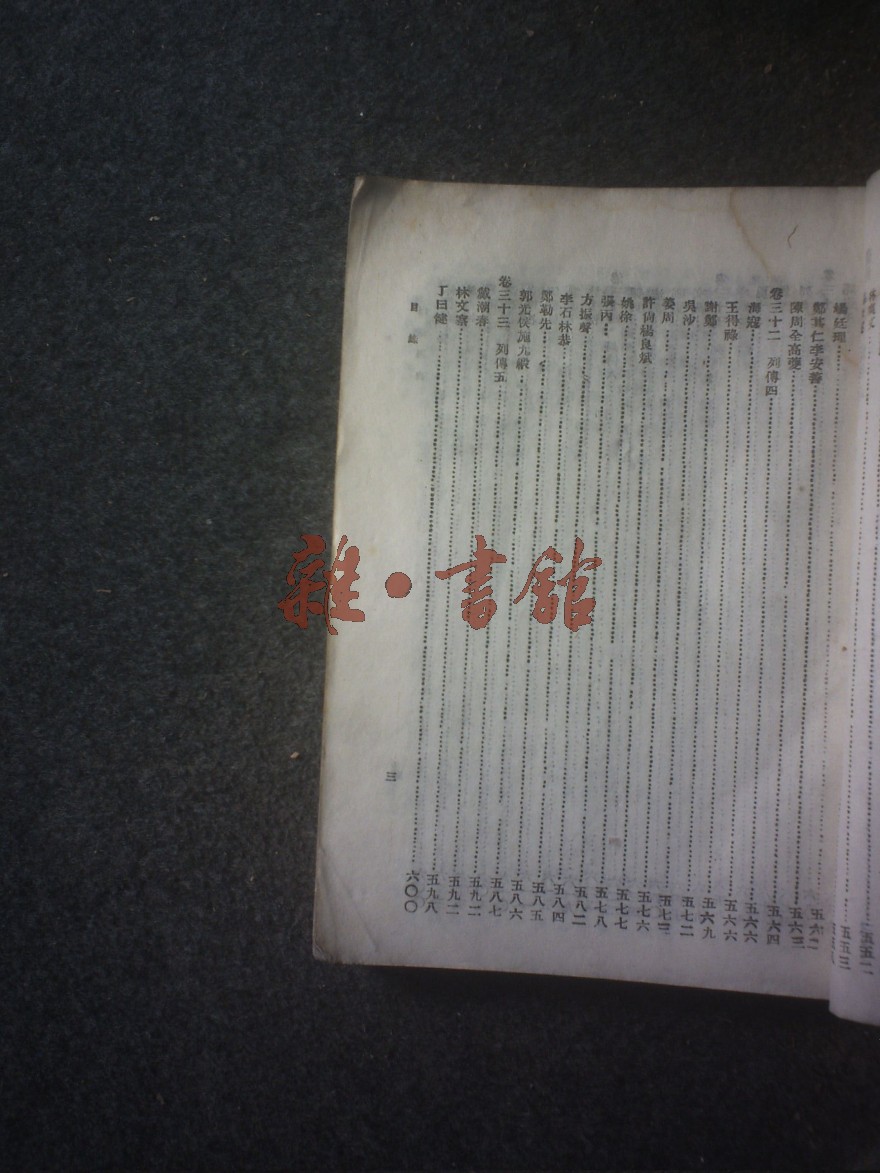 楊廷理……五六二
鄭其仁李安善……五六三
陳周全高夔……五六四
卷三十二 列傳四……五六六
海寇……五六六
王得祿……五六九
謝鄭……五七二
吳沙……五七三
姜周……五七六
許尚楊良斌……五七七
姚徐……五七八
張丙……五八二
方振聲……五八四
李石林恭……五八五
鄭勒先……五八六
郭光侯施九緞……五八七
卷三十三 列傳五……五九二
戴潮春……五九二
林文察……五九八
丁曰健……六〇〇
目錄
三
雜·書館